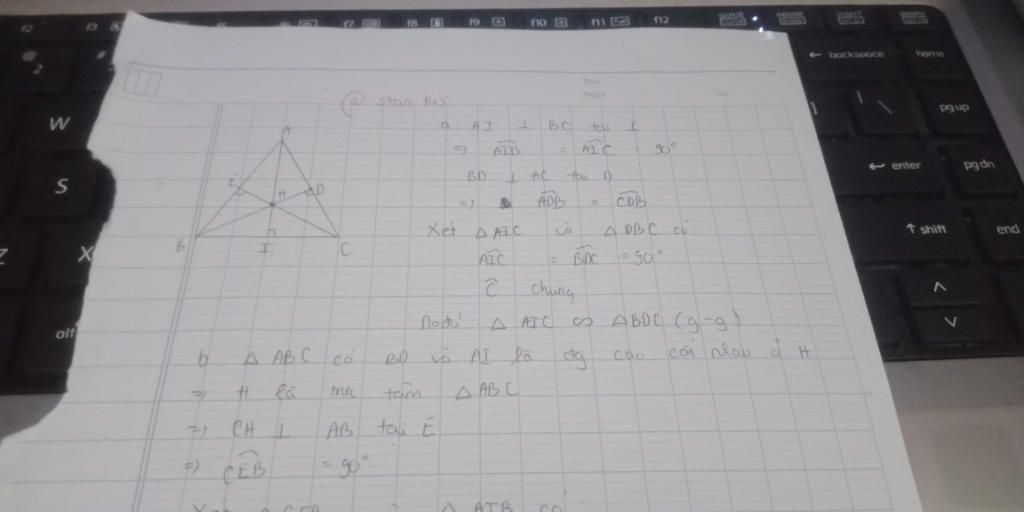 f2 f3 f7 f8 f9 f10 f11 f12 scroll insert delete
@ 2 # ← backspace home
W | \ pg up
S ← enter pg dn
X ↑ shift end
alt
Thứ
Ngày No.
A E D H B I C
a AI ⊥ BC tại I
=> AIB = AIC = 90°
BD ⊥ AC tại D
=> ADB = CDB
Xét △ AIC và △ DBC có
AIC = BDC = 90°
C chung
Do đó △ AIC ∽ △BDC (g-g)
b △ ABC có BD và AI là đg cao cắt nhau ở H
=> H là trực tâm △ABC
=> CH ⊥ AB tại E
=> CEB = 90°
Xét △ CEB và △ AIB có